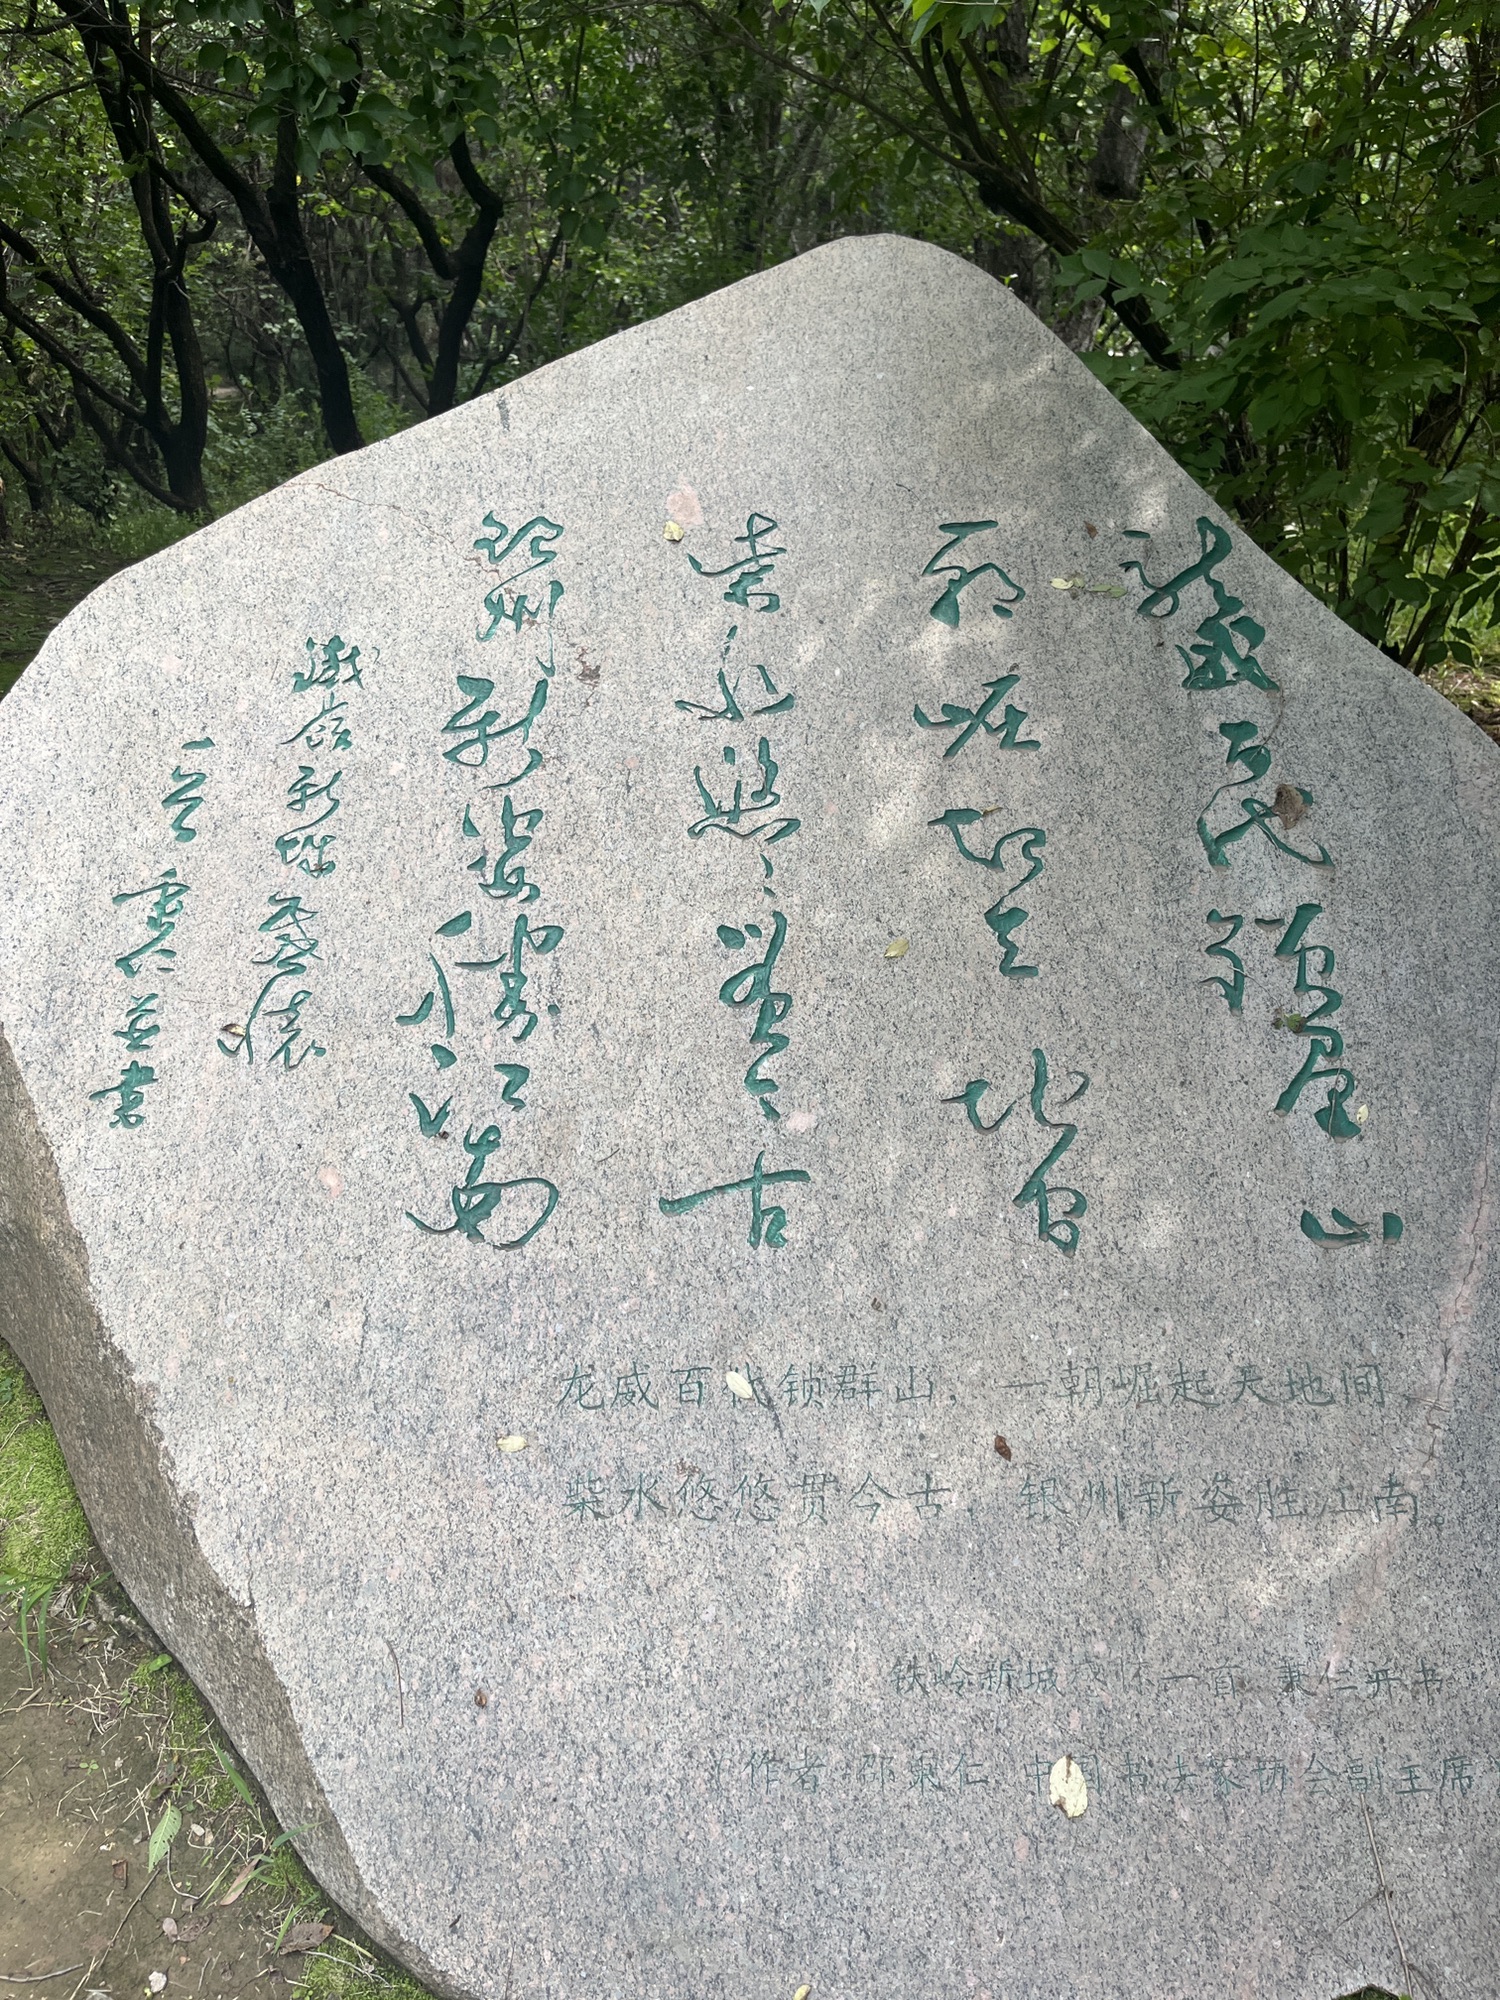 龍威百代鎖群山
一朝崛起天地間
柴水悠々貫今古
銀州新姿勝江南
鐵嶺新城感懷
一首秉仁並書
龙威百代锁群山，一朝崛起天地间
柴水悠悠贯今古，银州新姿胜江南。
铁岭新城感怀一首 秉仁并书
（作者 邵秉仁 中国书法家协会副主席